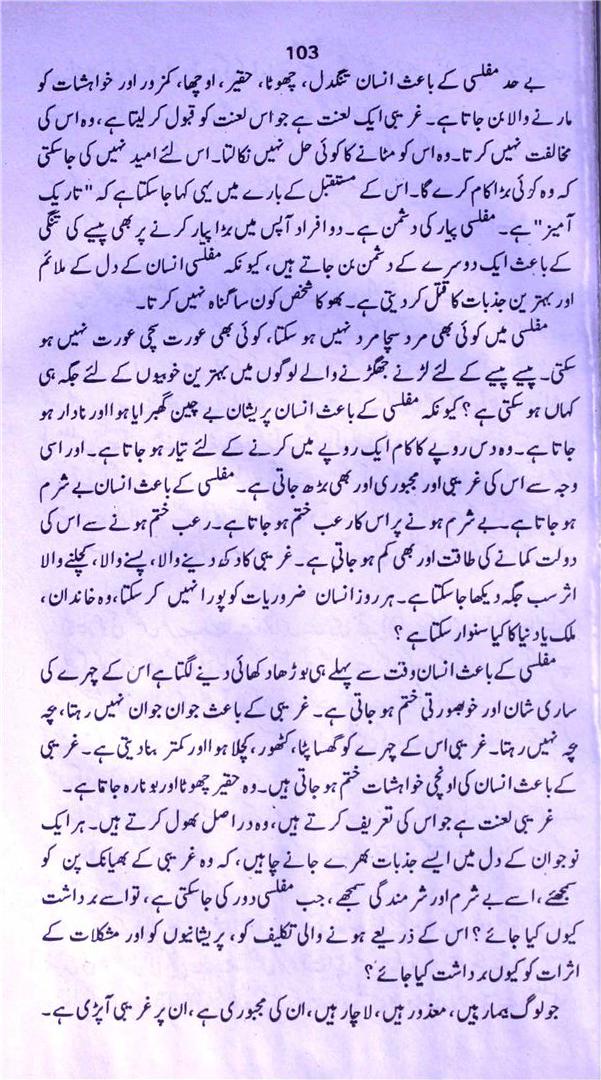 103
بے حد مفلسی کے باعث انسان تنگدل، چھوٹا، حقیر، اوچھا، کمزور اور خواہشات کو
مارنے والا بن جاتا ہے۔ غریبی ایک لعنت ہے جو اس لعنت کو قبول کر لیتا ہے، وہ اس کی
مخالفت نہیں کرتا۔ وہ اس کو مٹانے کا کوئی حل نہیں نکالتا۔ اس لئے امید نہیں کی جا سکتی
کہ وہ کوئی بڑا کام کرے گا۔ اس کے مستقبل کے بارے میں یہی کہا جا سکتا ہے کہ "تاریک
آمیز" ہے۔ مفلسی پیار کی دشمن ہے۔ دو افراد آپس میں بڑا پیار کرنے پر بھی پیسے کی تنگی
کے باعث ایک دوسرے کے دشمن بن جاتے ہیں، کیونکہ مفلسی انسان کے دل کے ملائم
اور بہترین جذبات کا قتل کر دیتی ہے۔ بھوکا شخص کون سا گناہ نہیں کرتا۔
مفلسی میں کوئی بھی مرد سچا مرد نہیں ہو سکتا، کوئی بھی عورت سچی عورت نہیں ہو
سکتی۔ پیسے پیسے کے لئے لڑنے جھگڑنے والے لوگوں میں بہترین خوبیوں کے لئے جگہ ہی
کہاں ہو سکتی ہے؟ کیونکہ مفلسی کے باعث انسان پریشان بے چین گھبرایا ہوا اور نادار ہو
جاتا ہے۔ وہ دس روپے کا کام ایک روپے میں کرنے کے لئے تیار ہو جاتا ہے۔ اور اسی
وجہ سے اس کی غریبی اور مجبوری اور بھی بڑھ جاتی ہے۔ مفلسی کے باعث انسان بے شرم
ہو جاتا ہے۔ بے شرم ہونے پر اس کا رعب ختم ہو جاتا ہے۔ رعب ختم ہونے سے اس کی
دولت کمانے کی طاقت اور بھی کم ہو جاتی ہے۔ غریبی کا دکھ دینے والا، پسنے والا، کچلنے والا
اثر سب جگہ دیکھا جا سکتا ہے۔ ہر روز انسان ضروریات کو پورا نہیں کر سکتا، وہ خاندان،
ملک یا دنیا کا کیا سنوار سکتا ہے؟
مفلسی کے باعث انسان وقت سے پہلے ہی بوڑھا دکھائی دینے لگتا ہے اس کے چہرے کی
ساری شان اور خوبصورتی ختم ہو جاتی ہے۔ غریبی کے باعث جوان جوان نہیں رہتا، بچہ
بچہ نہیں رہتا۔ غریبی اس کے چہرے کو گھسا پٹا، کٹھور، کچلا ہوا اور کمتر بنا دیتی ہے۔ غریبی
کے باعث انسان کی اونچی خواہشات ختم ہو جاتی ہیں۔ وہ حقیر چھوٹا اور بونا رہ جاتا ہے۔
غریبی لعنت ہے جو اس کی تعریف کرتے ہیں، وہ دراصل بھول کرتے ہیں۔ ہر ایک
نوجوان کے دل میں ایسے جذبات بھرے جانے چاہیں، کہ وہ غریبی کے بھیانک پن کو
سمجھئے، اسے بے شرم اور شرمندگی سمجھے، جب مفلسی دور کی جا سکتی ہے، تو اسے برداشت
کیوں کیا جائے؟ اس کے ذریعے ہونے والی تکلیف کو، پریشانیوں کو اور مشکلات کے
اثرات کو کیوں برداشت کیا جائے؟
جو لوگ بیمار ہیں، معذور ہیں، لاچار ہیں، ان کی مجبوری ہے، ان پر غریبی آ پڑی ہے۔